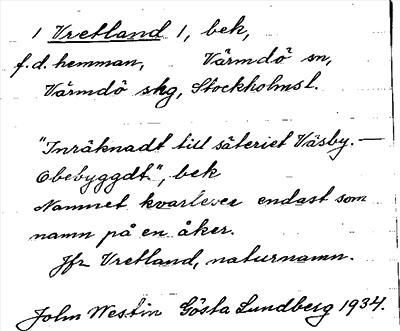 1 Vretland 1, bek,
f.d. hemman, Värmdö sn,
Värmdö skg, Stockholmsl.
"Inräknadt till säteriet Väsby. —
Obebyggdt", bek
Namnet kvarlever endast som
namn på en åker.
Jfr Vretland, naturnamn.
John Westin Gösta Lundberg 1934.